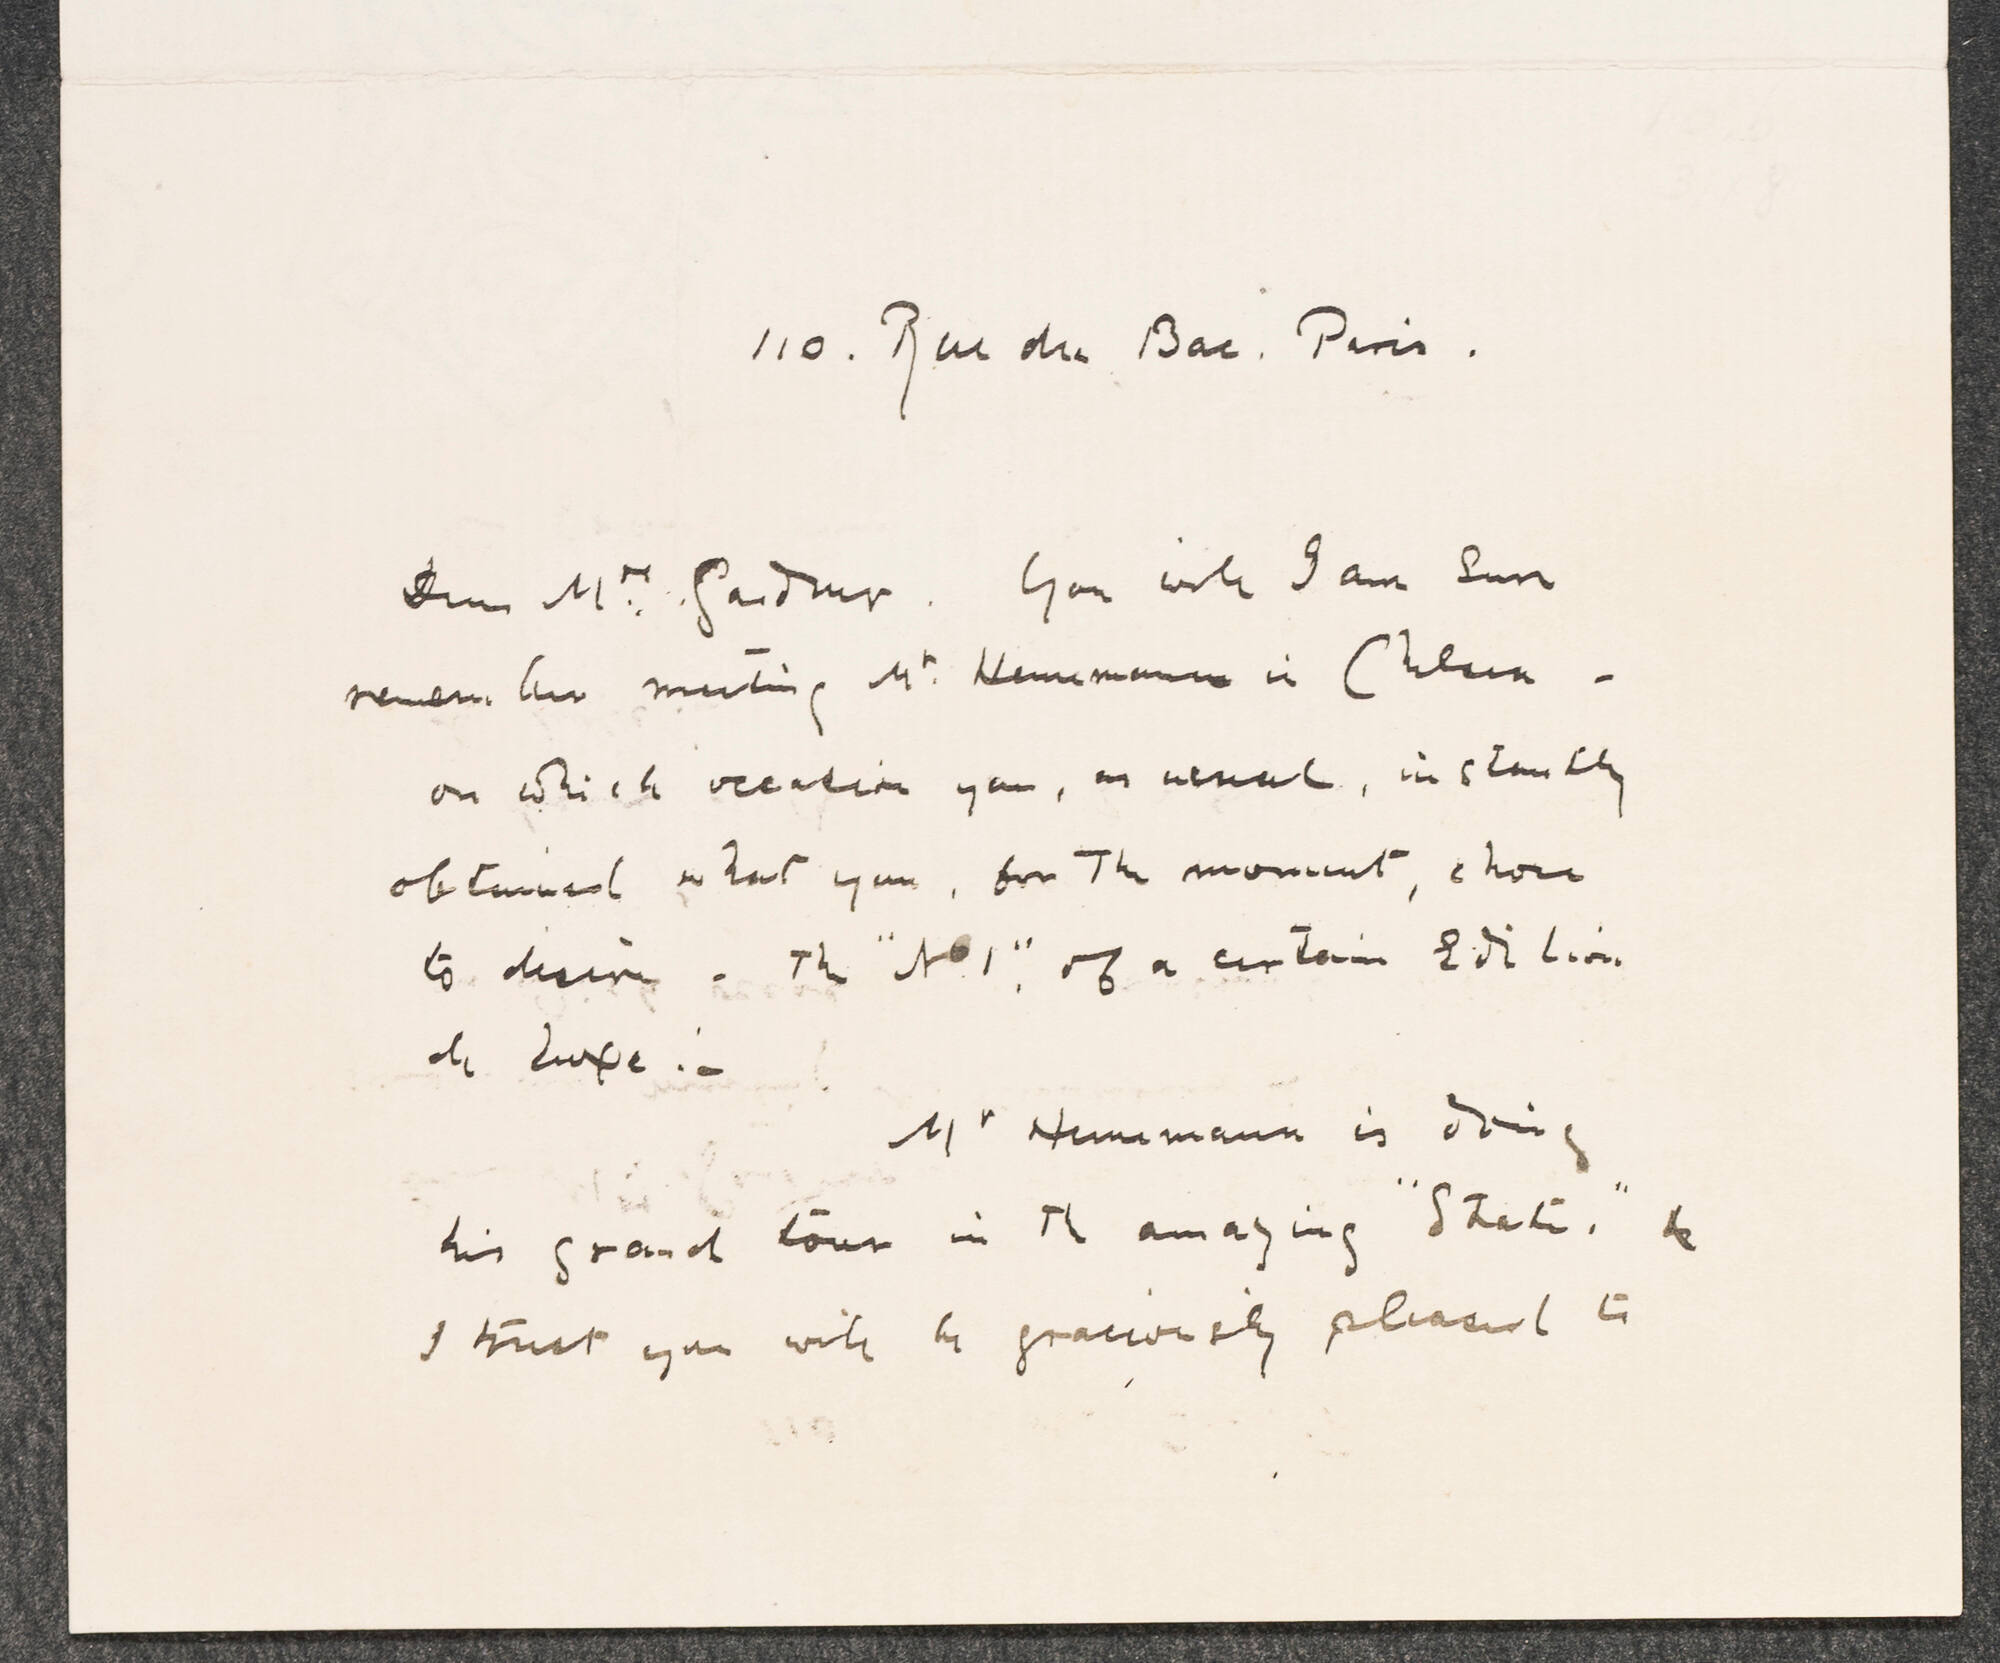 110. Rue du Bac. Paris.
Dear Mrs. Gardner. You will I am sure
remember meeting Mr. Heinemann in Chelsea -
on which occasion you, as usual, instantly
obtained what you, for the moment, chose
to desire - the "No 1", of a certain Edition
de Luxe :-
Mr Heinemann is doing
his grand tour in the amazing "States." &
I trust you will be graciously pleased to